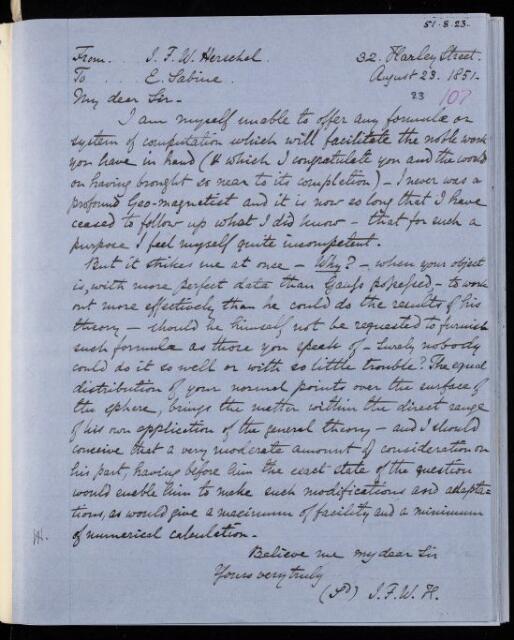 51.8.23.
From . . . J. F. W. Herschel. 32. Harley Street.
To . . . E. Sabine. August 23. 1851.
My dear Sir - 23 107
I am myself unable to offer any formula or
system of computation which will facilitate the noble work
you have in hand (& which I congratulate you and the world
on having brought so near to its completion) - I never was a
profound Geo-magnetist and it is now so long that I have
ceased to follow up what I did know - that for such a
purpose I feel myself quite incompetent.
But it strikes me at once - Why? - when your object
is, with more perfect data than Gauss possessed - to work
out more effectively than he could do the results of his
theory - should he himself not be requested to furnish
such formula as those you speak of - Surely nobody
could do it so well or with so little trouble? The equal
distribution of your normal points over the surface of
the sphere, brings the matter within the direct range
of his own application of the general theory - and I should
conceive that a very moderate amount of consideration on
his part, having before him the exact state of the question
would enable him to make such modifications and adapta-
tions, as would give a maximum of facility and a minimum
of numerical calculation -
Believe me my dear Sir
Yours very truly
(Sd) J. F. W. H.